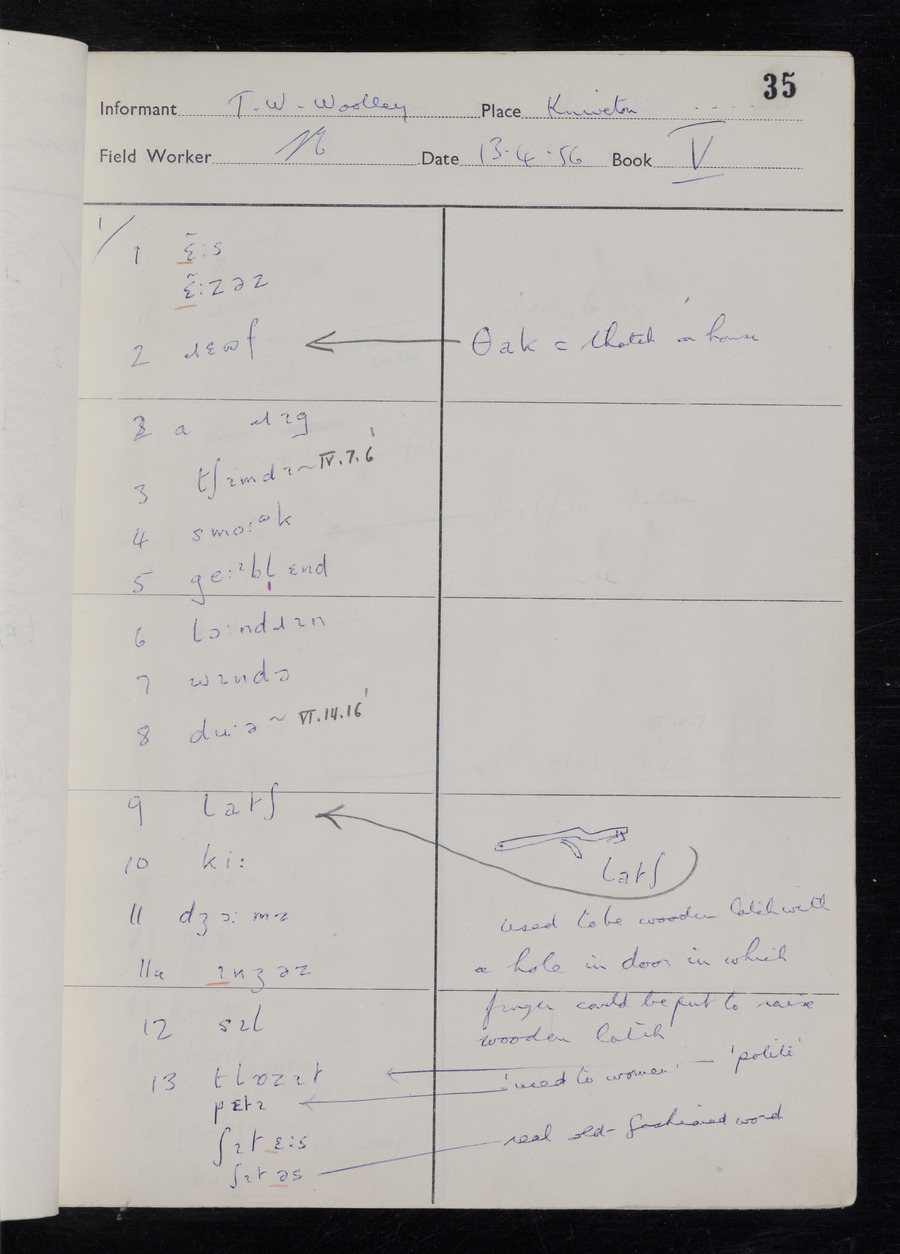 35
Informant T. W. Woolley Place Kniveton
Field Worker Date 13.4.56 Book V
1/
1 ɛ̃:s
ɛ̃:zəz
2 ɹɛʊf
θak = thatch on house
2 a ɹɪg
3 tʃɪmdɪ ~ IV.7.6
4 smo:ʊk
5 ge:ɪbl̩ ɛnd
6 lɔ:ndɹɪn
7 wɪndə
8 du:ə ~ VI.14.16
9 latʃ
10 ki:
latʃ
11 dʒɔ:mz
11a ɪnʒəz
used to be wooden latch with
a hole in door in which
finger could be put to raise
wooden latch
12 sɪl
13 tlɒzɪt
'used to women' — 'polite'
pɛtɪ
ʃɪt ɛ:s
ʃɪt əs
real old-fashioned word